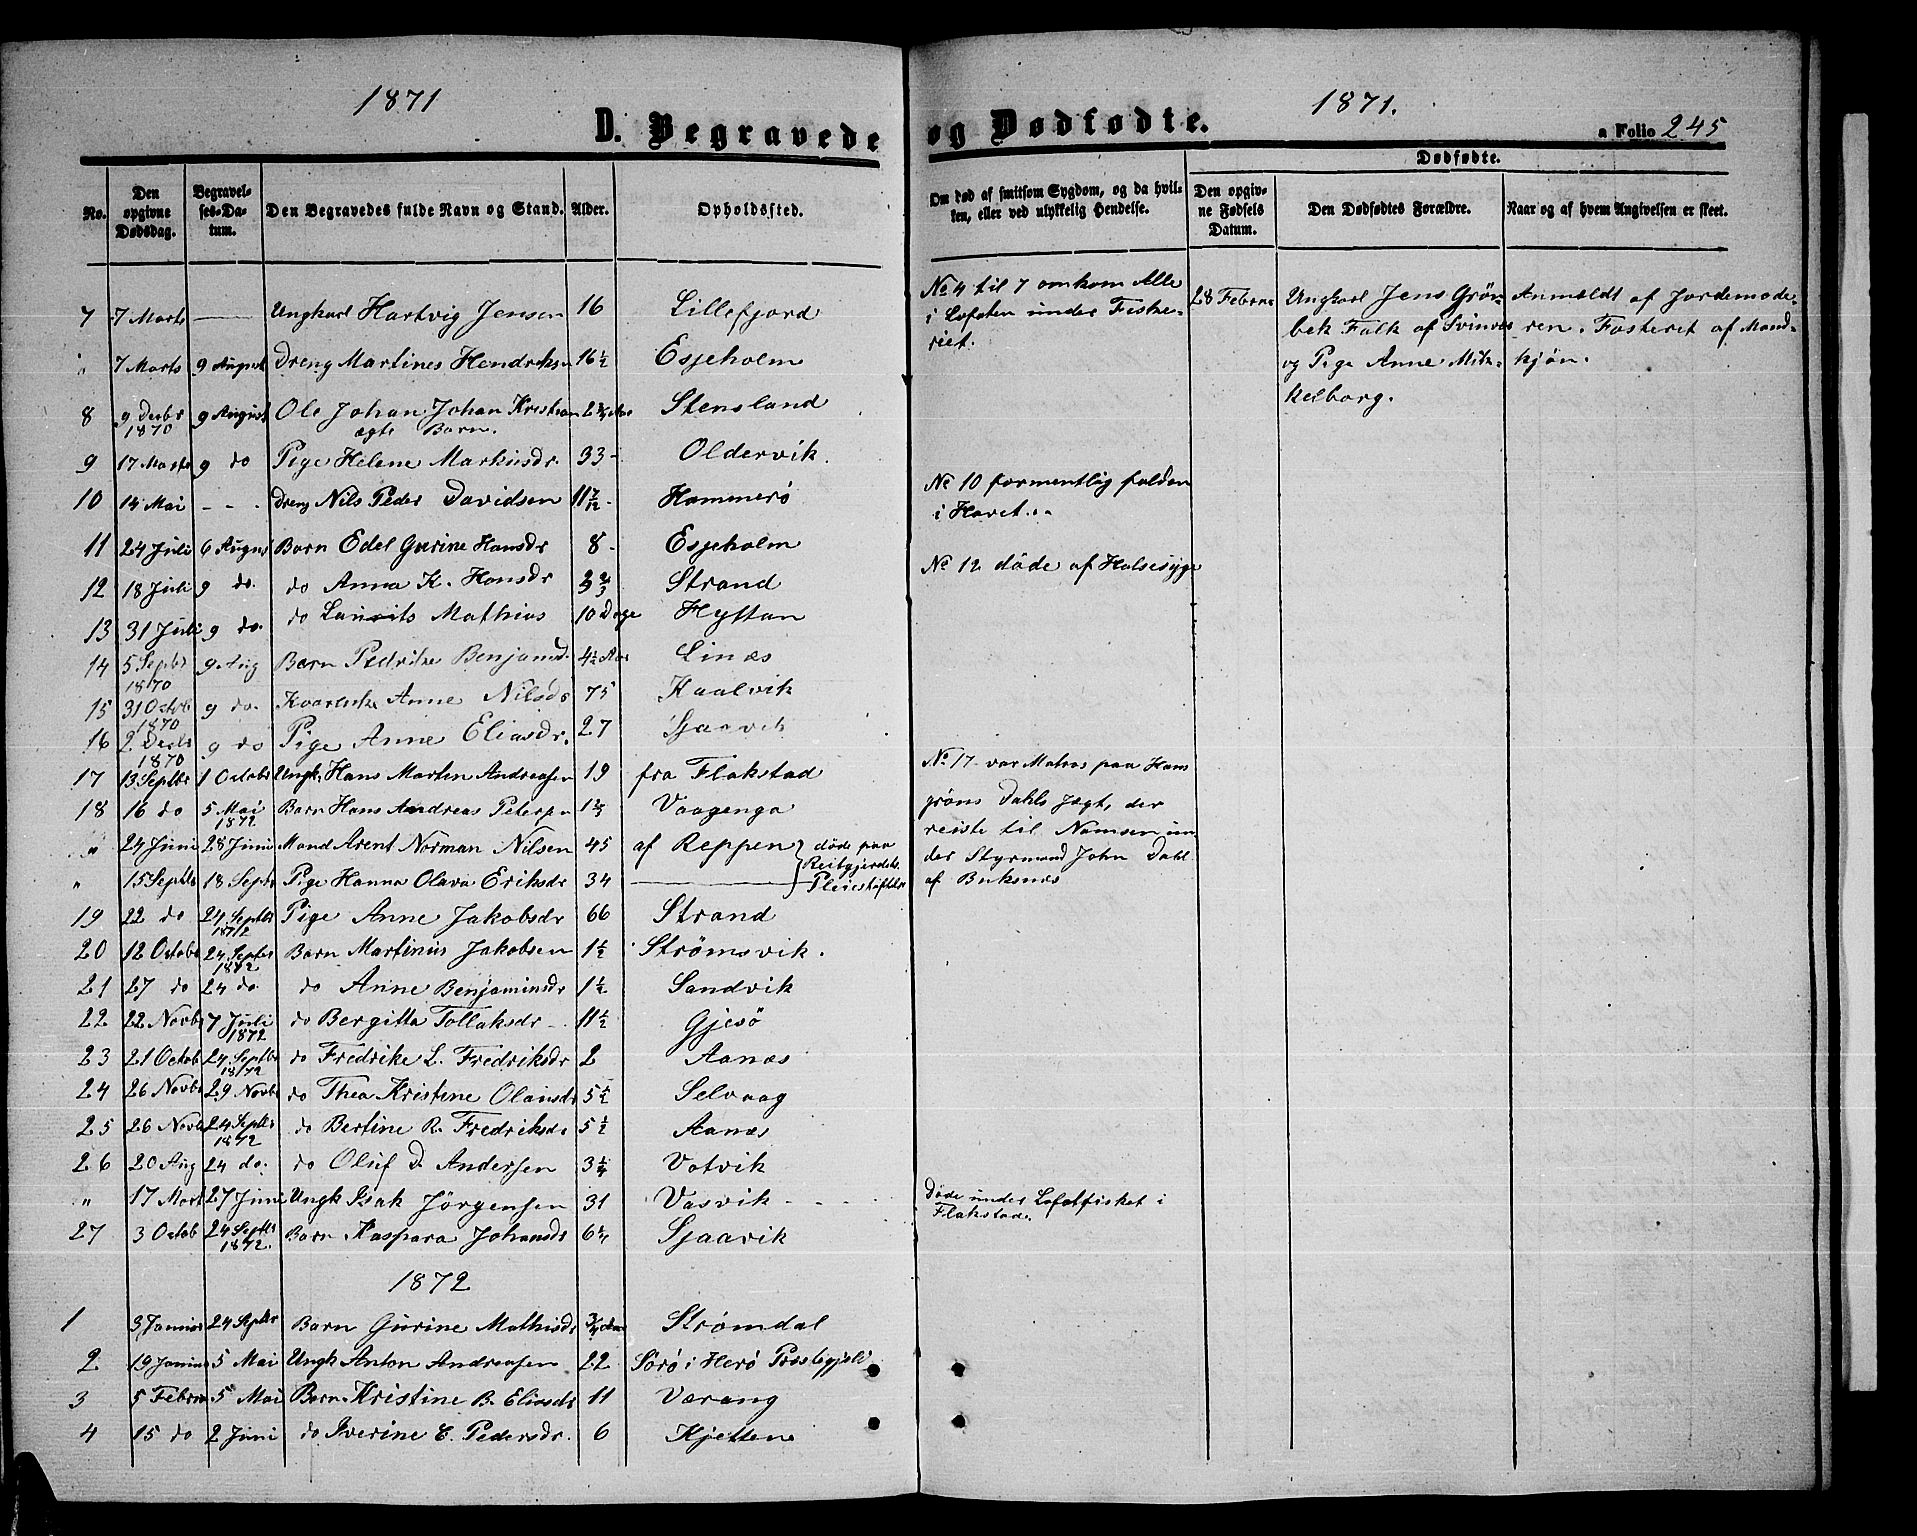 1871
D. Begravede
No.
Den opgivne Dødsdag.
Begravelses-Datum.
Den Begravedes fulde Navn og Stand.
Alder.
Opholdssted.
7 7 Marts — Ungkarl Hartvig Jensen 16 Lillefjord
" 7 Marts 9 August Dreng Martines Hendriksn 16½ Esjeholm
8 9 Decbr 1870 9 August Ole Johan Johan Kristian Stensland
ægte Barn.
9 17 Marts 9 do Pige Helene Markusdr. 33 - Oldervik.
10 14 Mai - - - Dreng Nils Peder Davidsen 11 7/12 - Hammerø
11 24 Juli 6 August Barn Edel Gurine Hansdr 8 - Esjeholm
12 18 Juli 9 do. do Anna K. Hansdr Strand
13 31 Juli 9 do. do Laurits Mathias 10 Dage Hystan
14 5 Septbr 1870 9 Aug Barn Pedrike Benjamsd. 4½ Aar Linæs
15 31 Octob 1870 9 do. Anne Nilsdr 75 Kaalvik
16 2 Decbr 1870 9 do Pige Anne Eliasdr. 27 Sjaavik
17 13 Septbr 1 Octobr Ungk. Hans Marten Andreasen 19 fra Flakstad
18 16 do 5 Mai 1872 Barn Hans Andreas Petersn Vaagenga
" 24 Juni 28 Juni Mand Arent Norman Nilsen 45 af Reppen } døde paa Reitgjerdets Pleiestiftelse
" 15 Septbr 18 Septr Pige Hanna Olava Eriksdr 34 —
19 22 do 24 Septbr 1872 Pige Anne Jakobsdr 66 Strand
20 12 Octobr 24 Septbr 1872 Barn Martinus Jakobsen 1½ Strømsvik.
21 27 do 24 do do Anne Benjaminsdr 1¼ Sandvik
22 22 Novbr 7 Juli 1872 do Bergitta Tollaksdr - 11½ Gjesø
23 21 Octob 24 Septbr 1872 do Fredrike L. Fredriksdr 2 Aanæs
24 26 Novbr 29 Novbr do Thea Kristine Olansdr 5½ Selvaag
25 26 Novb 24 Septbr 1872 do Bertine R. Fredriksdr 5½ Aanæs
26 20 Aug 24 do. do Oluf D. Andersen 3¼ Votvik
" 17 Mart 27 Juni Ungk Isak Jörgensen 31 Vasvik - - -
27 3 Octob 24 Septbr 1872. Barn Kaspara Johansdr 6¼ Sjaavik
1872
1 3 Januar 24 Septbr Barn Gurine Mathisdr Strømdal
2 19 Januar 5 Mai Ungk Anton Andreasen 22 Sørø i Herø Præstegjeld
3 5 Februar 5 Mai Barn Kristine B. Eliasdr 11 Værang
4 15 do 2 Juni do Iverine E. Pedersdr. 6 Kjettene
1871.
og Dødfødte.
a Folio 245
Om død af smitsom Sygdom, og da hvilken, eller ved ulykkelig Hendelse.
Dødfødte.
Den opgivne Fødsels Datum.
Den Dødfødtes Forældre.
Naar og af hvem Angivelsen er skeet.
No 4 til 7 omkom Alle
i Lofoten under Fiske-
riet.
28 Februar
Ungkarl Jens Grön-
bek Falk af Svinnæs
og Pige Anne Mik-
kelborg.
Anmeldt af Jordemode-
ren. Fosteret af Mand-
kjøn.
No 10 formentlig falden
i Havet.
No 12 døde af Halsesyge
No 17 var Matros paa Hans
Gröns Dahls Jægt, der
reiste til Namsen un-
der Styrmand John Dahl
af Buksnæs
Døde under Lofotfisket i
Flakstad.